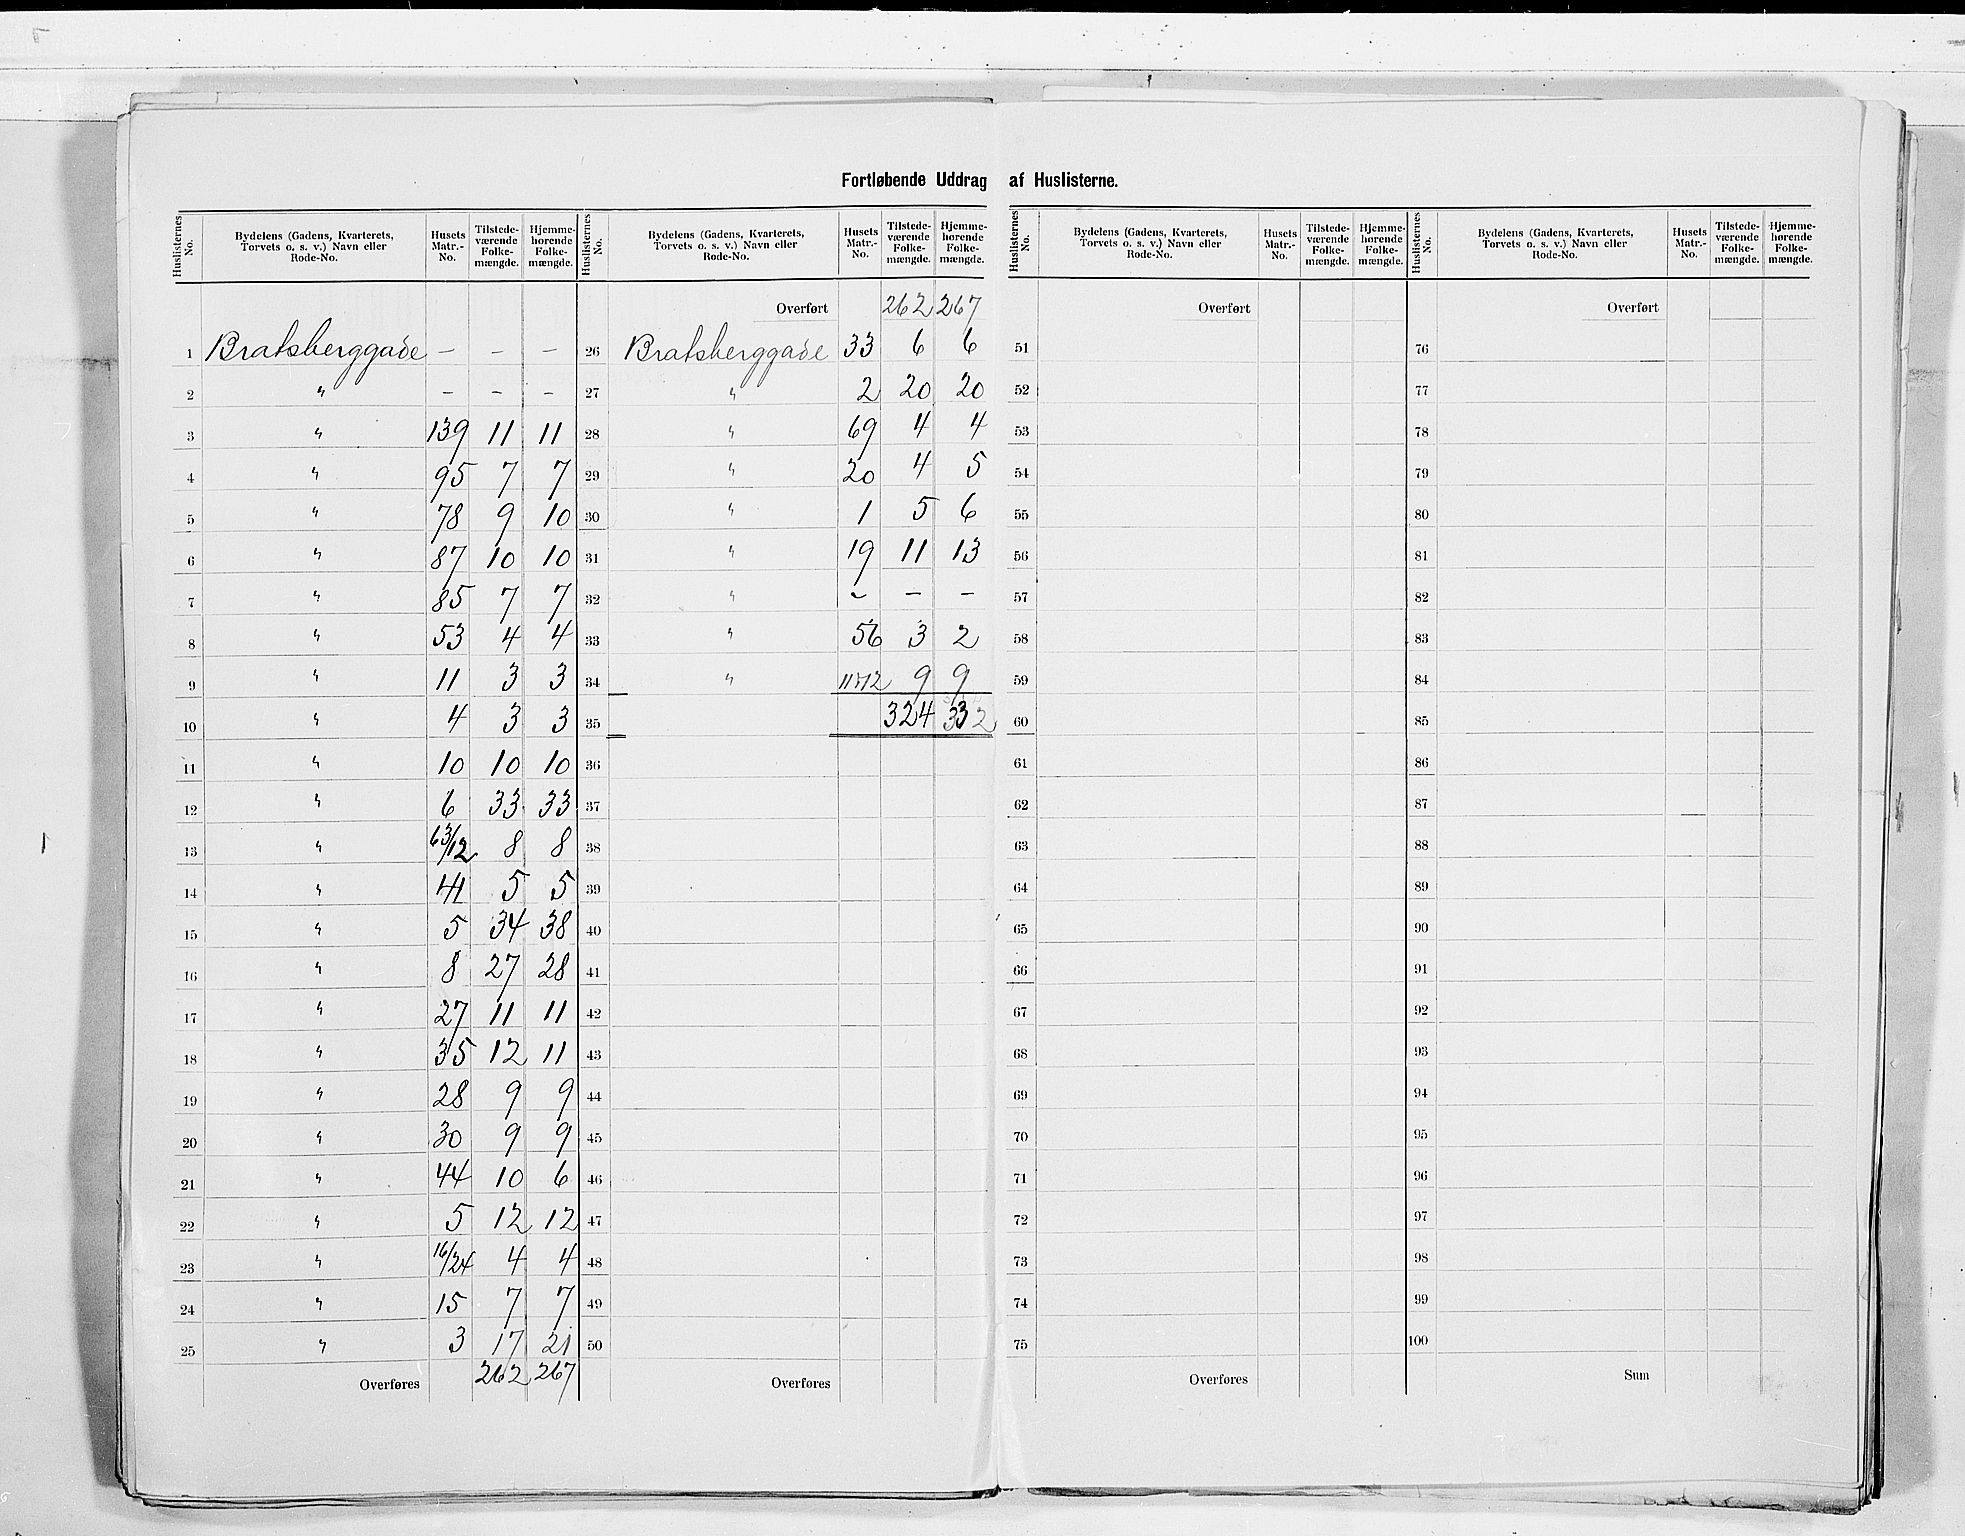 Fortløbende Uddrag af Huslisterne.
Huslisternes No. | Bydelens (Gadens, Kvarterets, Torvets o. s. v.) Navn eller Rode-No. | Husets Matr.-No. | Tilstede-værende Folke-mængde. | Hjemme-hørende Folke-mængde.
1 Bratsberggade – – –
2 " – – –
3 " 139 11 11
4 " 95 7 7
5 " 78 9 10
6 " 87 10 10
7 " 85 7 7
8 " 53 4 4
9 " 11 3 3
10 " 4 3 3
11 " 10 10 10
12 " 6 33 33
13 " 63/12 8 8
14 " 41 5 5
15 " 5 34 38
16 " 8 27 28
17 " 27 11 11
18 " 35 12 11
19 " 28 9 9
20 " 30 9 9
21 " 44 10 6
22 " 5 12 12
23 " 16/24 4 4
24 " 15 7 7
25 " 3 17 21
Overføres 262 267
Huslisternes No. | Bydelens (Gadens, Kvarterets, Torvets o. s. v.) Navn eller Rode-No. | Husets Matr.-No. | Tilstede-værende Folke-mængde. | Hjemme-hørende Folke-mængde.
Overført 262 267
26 Bratsberggade 33 6 6
27 " 2 20 20
28 " 69 4 4
29 " 20 4 5
30 " 1 5 6
31 " 19 11 13
32 " – – –
33 " 56 3 2
34 " 9 9
35 324 332
36
37
38
39
40
41
42
43
44
45
46
47
48
49
50
Overføres
Huslisternes No. | Bydelens (Gadens, Kvarterets, Torvets o. s. v.) Navn eller Rode-No. | Husets Matr.-No. | Tilstede-værende Folke-mængde. | Hjemme-hørende Folke-mængde.
Overført
51
52
53
54
55
56
57
58
59
60
61
62
63
64
65
66
67
68
69
70
71
72
73
74
75
Overføres
Huslisternes No. | Bydelens (Gadens, Kvarterets, Torvets o. s. v.) Navn eller Rode-No. | Husets Matr.-No. | Tilstede-værende Folke-mængde. | Hjemme-hørende Folke-mængde.
Overført
76
77
78
79
80
81
82
83
84
85
86
87
88
89
90
91
92
93
94
95
96
97
98
99
100
Sum